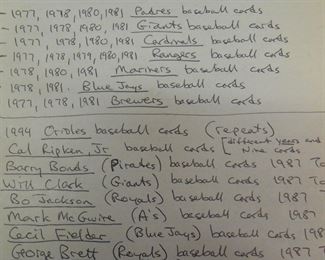 1977, 1978, 1980, 1981 Padres baseball cards
- 1977, 1978, 1980, 1981 Giants baseball cards
- 1977, 1978, 1980, 1981 Cardinals baseball cards
- 1977, 1978, 1979, 1980, 1981 Rangers baseball cards
- 1978, 1980, 1981 Mariners baseball cards
- 1978, 1981. Blue Jays baseball cards
1977, 1978, 1981 Brewers baseball cards
1994 Orioles baseball cards (repeats)
Cal Ripken, Jr baseball cards [different years and
Nine cards
Barry Bonds (Pirates) baseball cards 1987 To
Will Clark (Giants) baseball cards 1987
Bo Jackson (Royals) baseball cards 1987
Mark McGwire (A's) baseball cards 1987
Cecil Fielder (Blue Jays) baseball cards 198
George Brett (Royals) baseball cards 1987 T